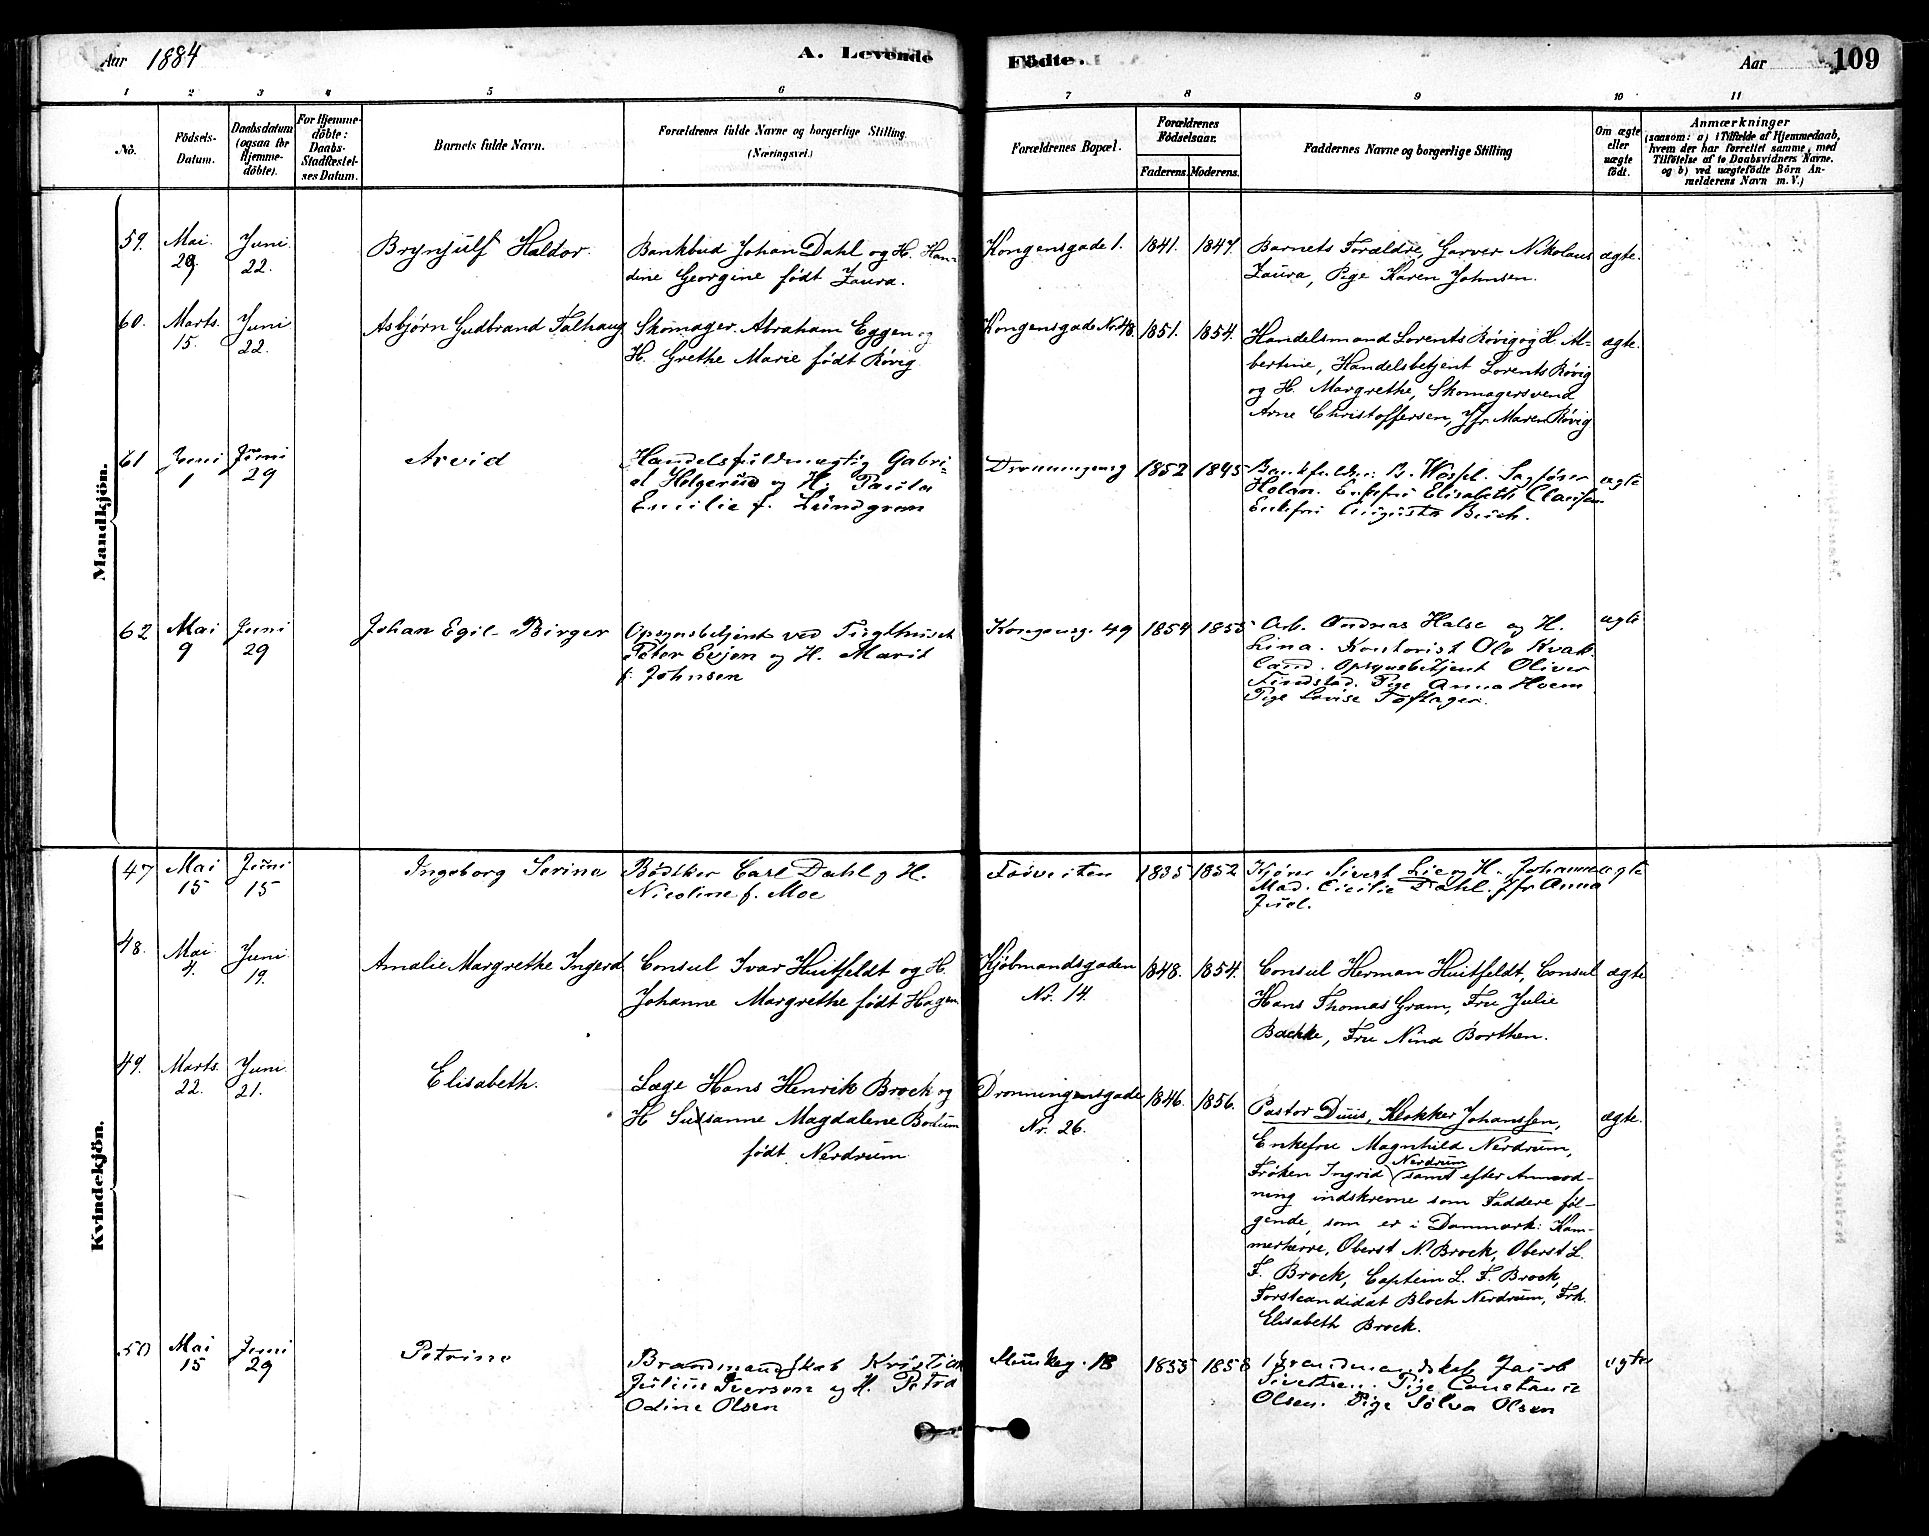 Aar 1884
A. Levende
Födte.
Aar
109
1 2 3 4 5 6 7 8 9 10 11
No.
Födsels-Datum.
Daabsdatum (ogsaa for Hjemme-döbte).
For Hjemme-döbte: Daabs-Stadfæstel-ses Datum.
Barnets fulde Navn.
Forældrenes fulde Navne og borgerlige Stilling.
(Næringsvei.)
Forældrenes Bopæl.
Forældrenes Födselsaar.
Faderens. Moderens.
Faddernes Navne og borgerlige Stilling
Om ægte eller uægte födt.
Anmærkninger
(saasom: a) i Tilfælde af Hjemmedaab,
hvem der har forrettet samme, med
Tilföielse af to Daabsvidners Navne.
og b) ved uægtefödte Börn An-
melderens Navn m.V.)
Mandkjön.
59. Mai 29. Juni 22. Brynjulf Haldor.
Bankbud Johan Dahl og H. Han-
dine Georgine født Zaura.
Kongensgade 1. 1841. 1847.
Barnets Forældre, Garver Nikolaus
Zaura, Pige Karen Johnsen.
ægte.
60. Marts. 15. Juni 22. Asbjørn Gudbrand Falhaug
Skomager Abraham Eggen og
H. Grethe Marie født Røvig
Kongensgade Nr. 48. 1851. 1854.
Handelsmand Lorents Røvig og H. Al-
bertine, Handelsbetjent Lorents Røvig
og H. Margrethe, Skomagersvend
Arne Christoffersen, Jfr. Maren Røvig
ægte.
61 Juni 1 Juni 29 Arvid
Handelsfuldmægtig Gabri-
el Holgerud og H. Paula
Emilie f. Lundgren
Dronningensg 1852 1845
Elisabeth Clausen
Enkefru Augusta
ægte
62 Mai 9 Juni 29 Johan Egil Birger
Opsynsbetjent ved Tugthuset
Peter Evjen og H. Marit
f. Johnsen
Kongensg. 49 1854 1855
Arb. Andreas Halse og H.
Lina. Kontorist Ole Kvak-
land. Opsynsbetjent Oliver
Findstad. Pige Anna Hoem
Pige Lovise Toftager.
ægte
Kvindekjön.
47 Mai 15 Juni 15 Ingeborg Serine
Bødtker Carl Dahl og H.
Nicoline f. Moe
1835 1852
Kjører Sivert Lie og H. Johanne
Mad. Cicilie Dahl. Jfr Anna
Juel.
ægte
48. Mai 4. Juni 19. Amalie Margrethe Ingerd
Consul Ivar Huitfeldt og H.
Johanne Margrethe født Hagen
Kjøbmandsgaden
Nr. 14.
1848. 1854.
Consul Herman Huitfeldt, Consul
Hans Thomas Gram, Fru Julie
Backke, Fru Nina Borthen.
ægte
49. Marts. 22. Juni 21. Elisabeth.
Læge Hans Henrik Brock og
H Susanne Magdalene
født Nerdrum
Dronningensgade
Nr. 26.
1846. 1856.
Pastor Duus, Klokker Johanssen,
Enkefru Magnhild Nerdrum,
Frøken Ingrid Nerdrum samt efter Anmod-
ning indskrevne som Faddere føl-
gende, som er i Danmark: Kam-
merherre, Oberst N. Brock, Oberst L.
F. Brock, Captein L. F. Brock,
Forstcandidat Bloch Nerdrum, Frk.
Elisabeth Brock.
ægte.
50 Mai 15 Juni 29 Petrine
Brandmandskab Kristian
Julius Iversen og H. Petra
Odine Olsen
Munkeg. 18 1855 1858
Brandmandskab Jacob
Sivertsen. Pige Constance
Olsen. Pige Sølva Olsen
ægte